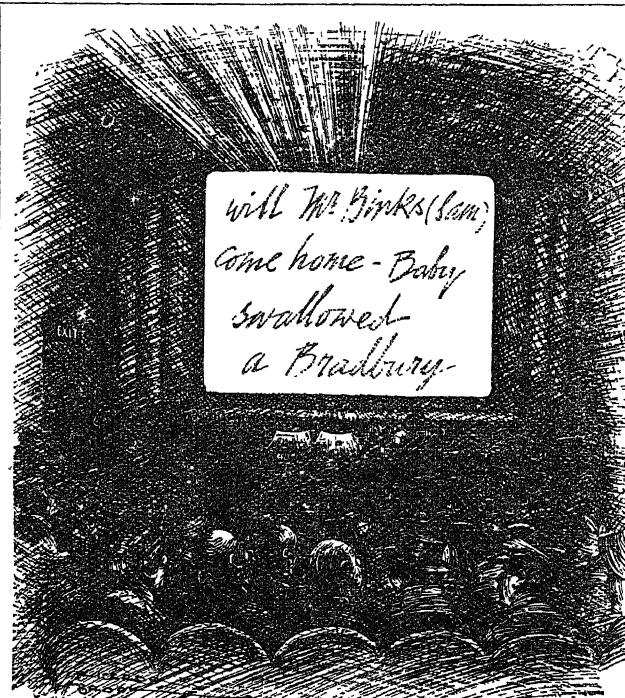 EXIT
will Mr Binks (Sam)
come home - Baby
swallowed
a Bradbury -